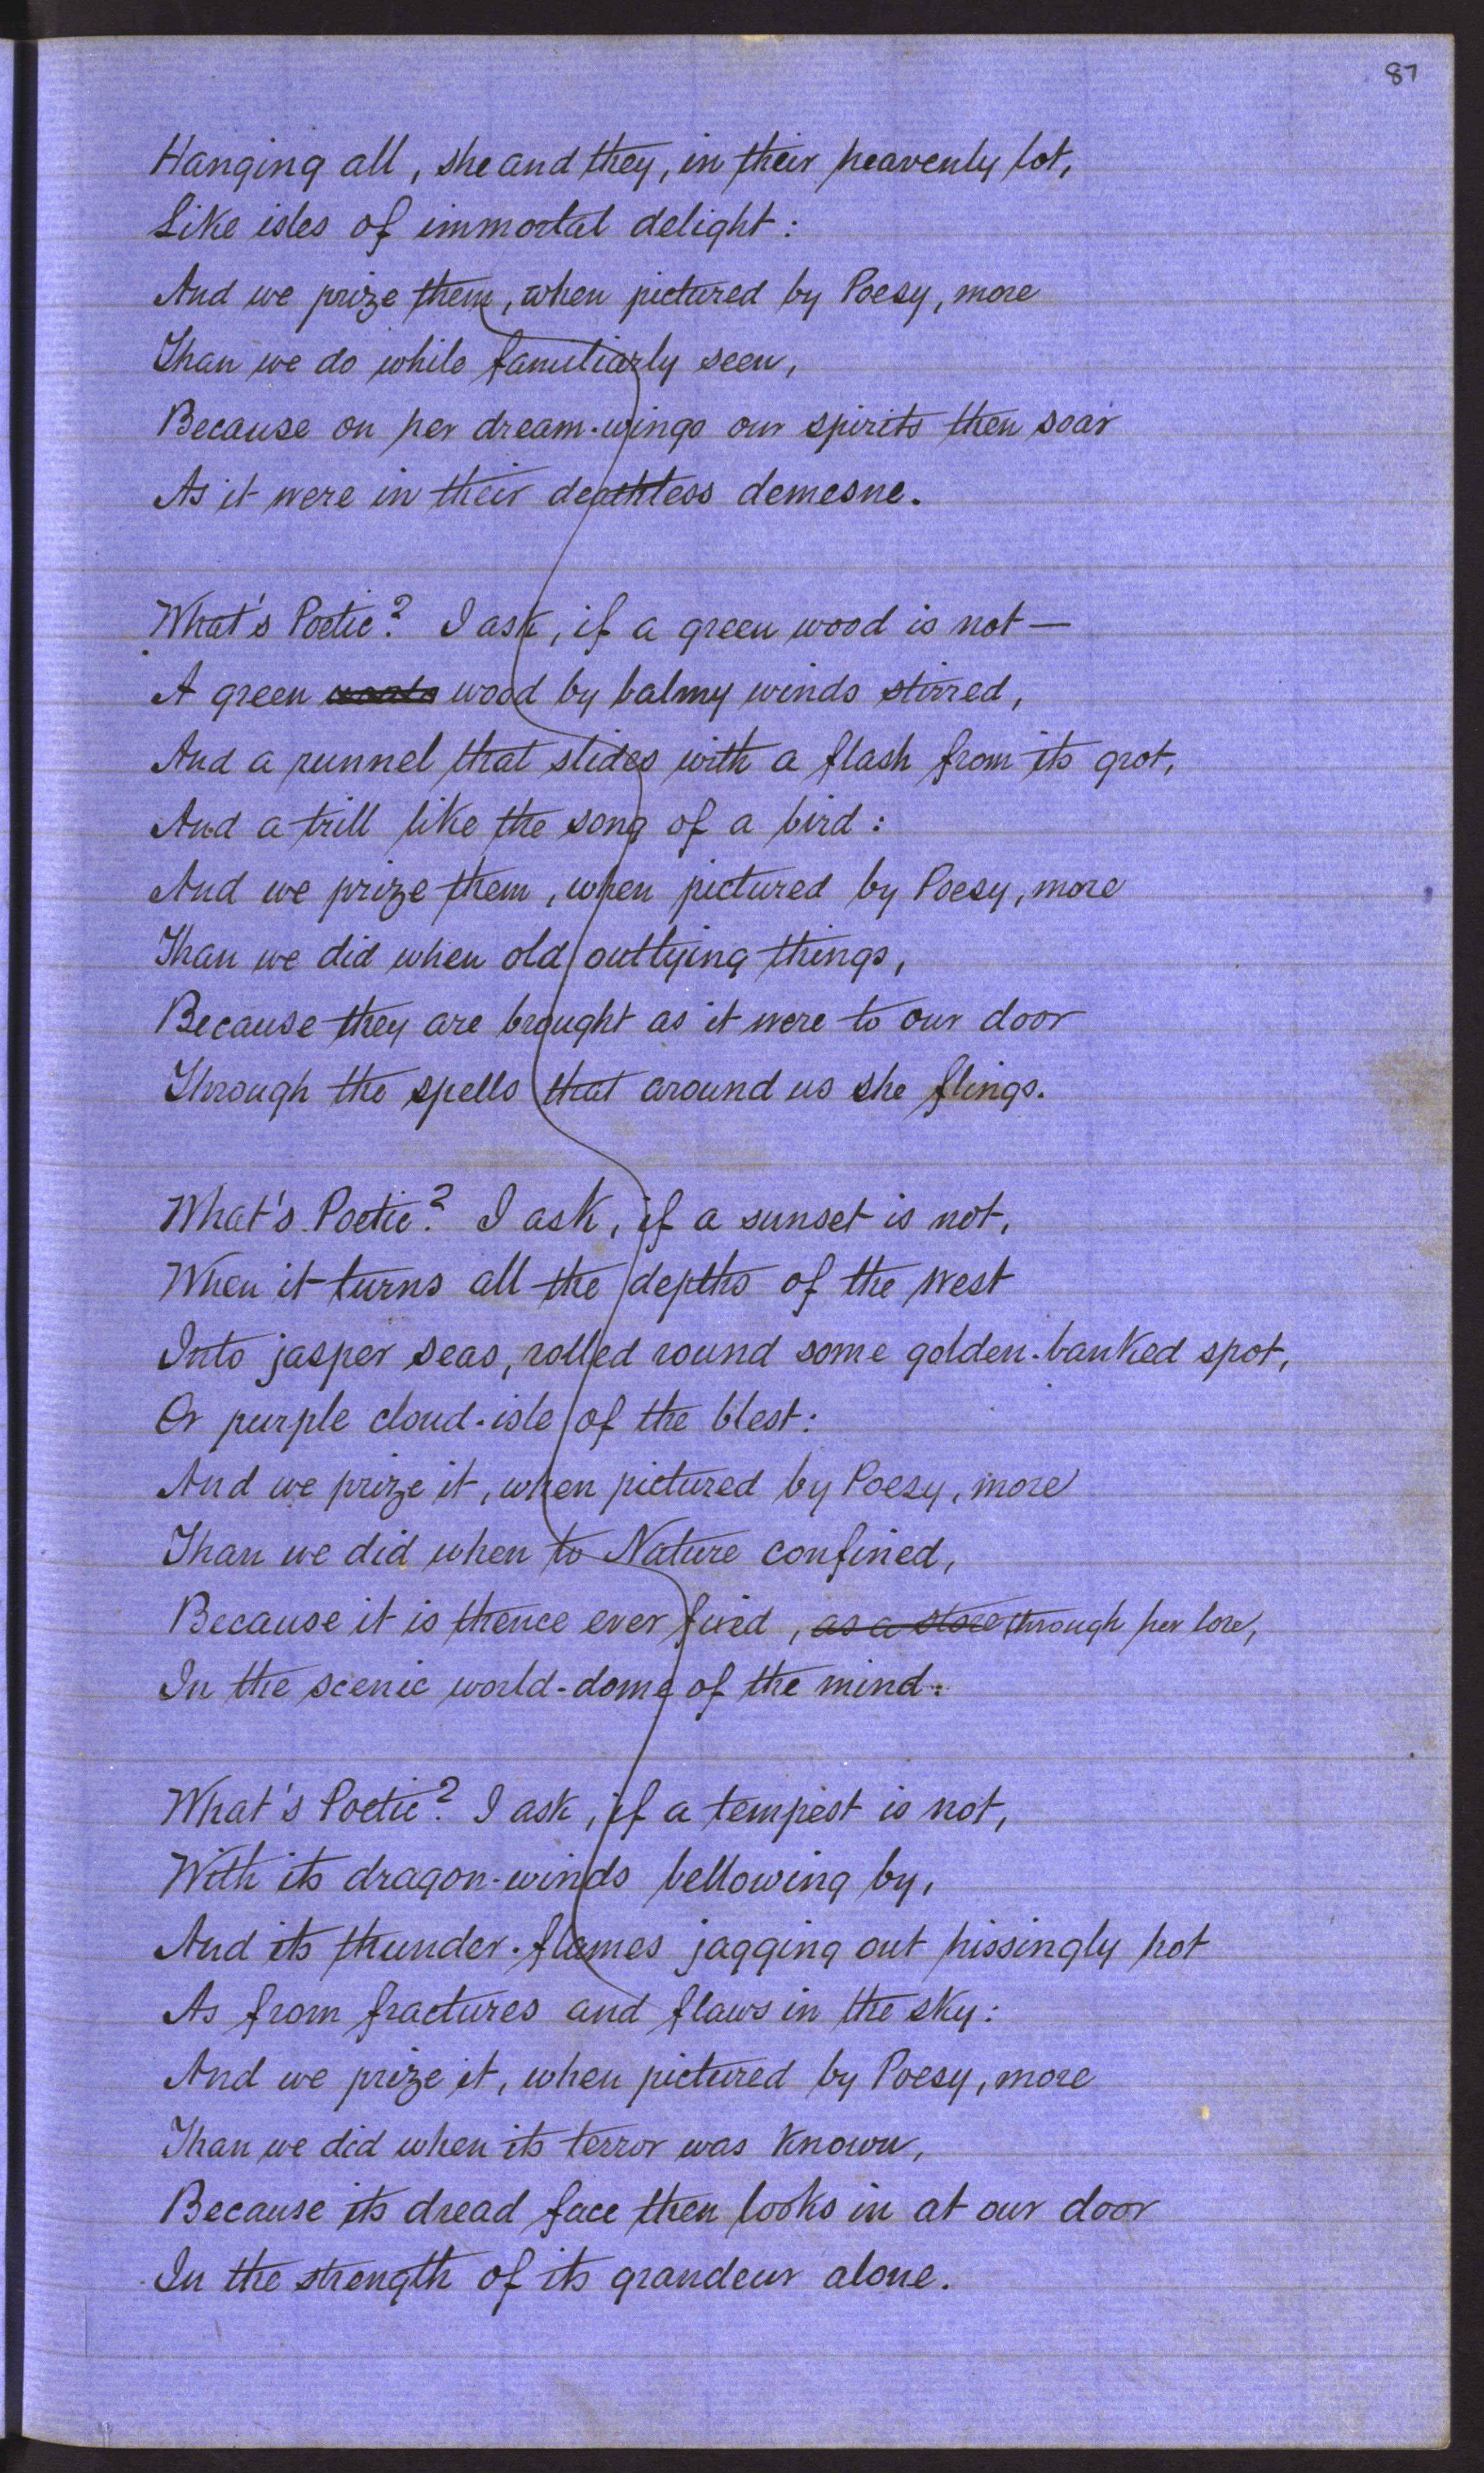 87
Hanging all, she and they, in their heavenly lot,
Like isles of immortal delight:
And we prize them, when pictured by Poesy, more
Than we do while familiarly seen,
Because on her dream-wings our spirits then soar
As it were in their deathless demesne.
What's Poetic? I ask, if a green wood is not—
A green wood by balmy winds stirred,
And a runnel that slides with a flash from its grot,
And a trill like the song of a bird:
And we prize them, when pictured by Poesy, more
Than we did when old outlying things,
Because they are brought as it were to our door
Through the spells that around us she flings.
What's Poetic? I ask, if a sunset is not,
When it turns all the depths of the West
Into jasper seas, rolled round some golden-banked spot,
Or purple cloud-isle of the blest:
And we prize it, when pictured by Poesy, more
Than we did when to Nature confined,
Because it is thence ever fixed, as a store through her lore,
In the scenic world-dome of the mind.
What's Poetic? I ask, if a tempest is not,
With its dragon-winds bellowing by,
And its thunder-flames jagging out hissingly hot
As from fractures and flaws in the sky:
And we prize it, when pictured by Poesy, more
Than we did when its terror was known,
Because its dread face then looks in at our door
In the strength of its grandeur alone.